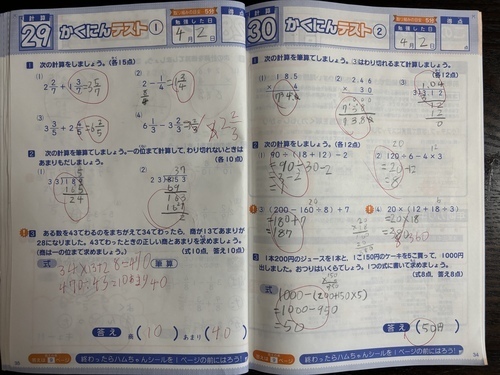 計算
29
かくにんテスト①
勉強した日
4月2日
得点
1 次の計算をしましょう。(各15点)
(1)
(2)
(3)
(4)
2 次の計算を筆算でしましょう。一の位まで計算して、わり切れないときは
あまりもだしましょう。(各10点)
(1)
(2)
3 ある数を43でわるのをまちがえて34でわったら、商が13であまりが
28になりました。43でわったときの正しい商とあまりを求めましょう。
(商は一の位まで求める)(式10点、答え10点)
式
筆算
34×13+28=470
470÷43=10あまり40
答え
商(10) あまり(40)
終わったらハムちゃんシールを1ページの前にはろう!
計算
30
かくにんテスト②
勉強した日
4月2日
得点
1 次の計算を筆算でしましょう。③はわりきれるまで計算しましょう。
(各12点)
(1) 185
× 4
(2) 246
× 30
7380
(3)
2 次の計算をしましょう。(各12点)
(1) 90÷(18+12)-2
=90÷30-2
=3-2
(2) 120÷6-4×3
=20-12
=8
(3) (200-160÷8)+7
=180+7
=187
(4) 20×(12+18÷3)
=20×18
360
3 1本200円のジュースを1本と、1こ150円のケーキを5こ買って、1000円
出しました。おつりはいくらでしょう。1つの式に書いて求めましょう。
(式8点、答え8点)
式
1000-(200+150×5)
=1000-950
=50
答え
(50円)
終わったらハムちゃんシールを1ページの前にはろう!